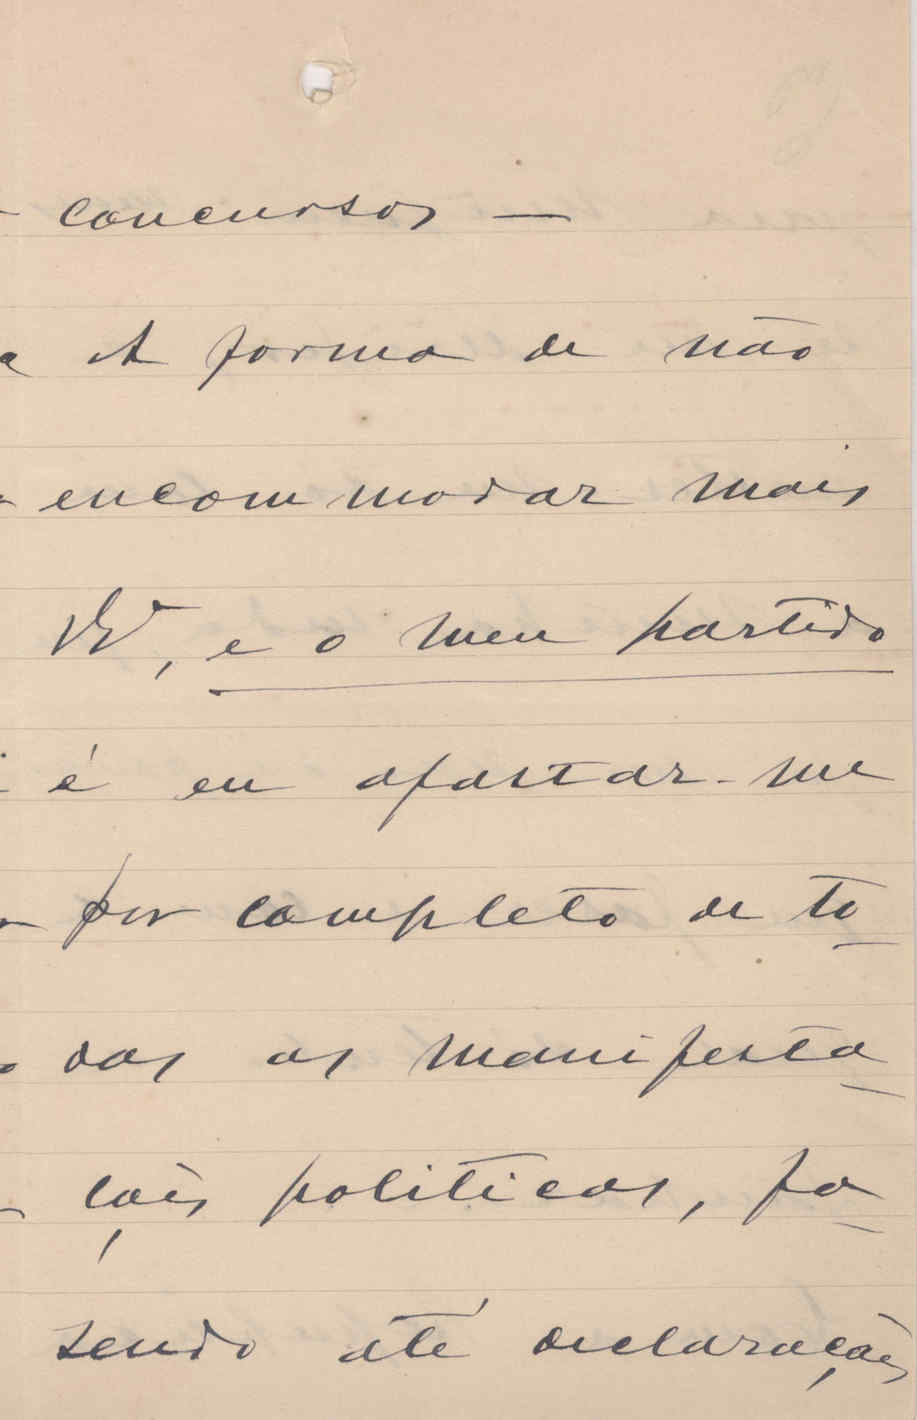 concursos —
A forma de não
encommodar mais
V.E., e o meu partido
é eu afastar-me
por completo de to
das as manifesta
ções politicas, fa
sendo até declarações